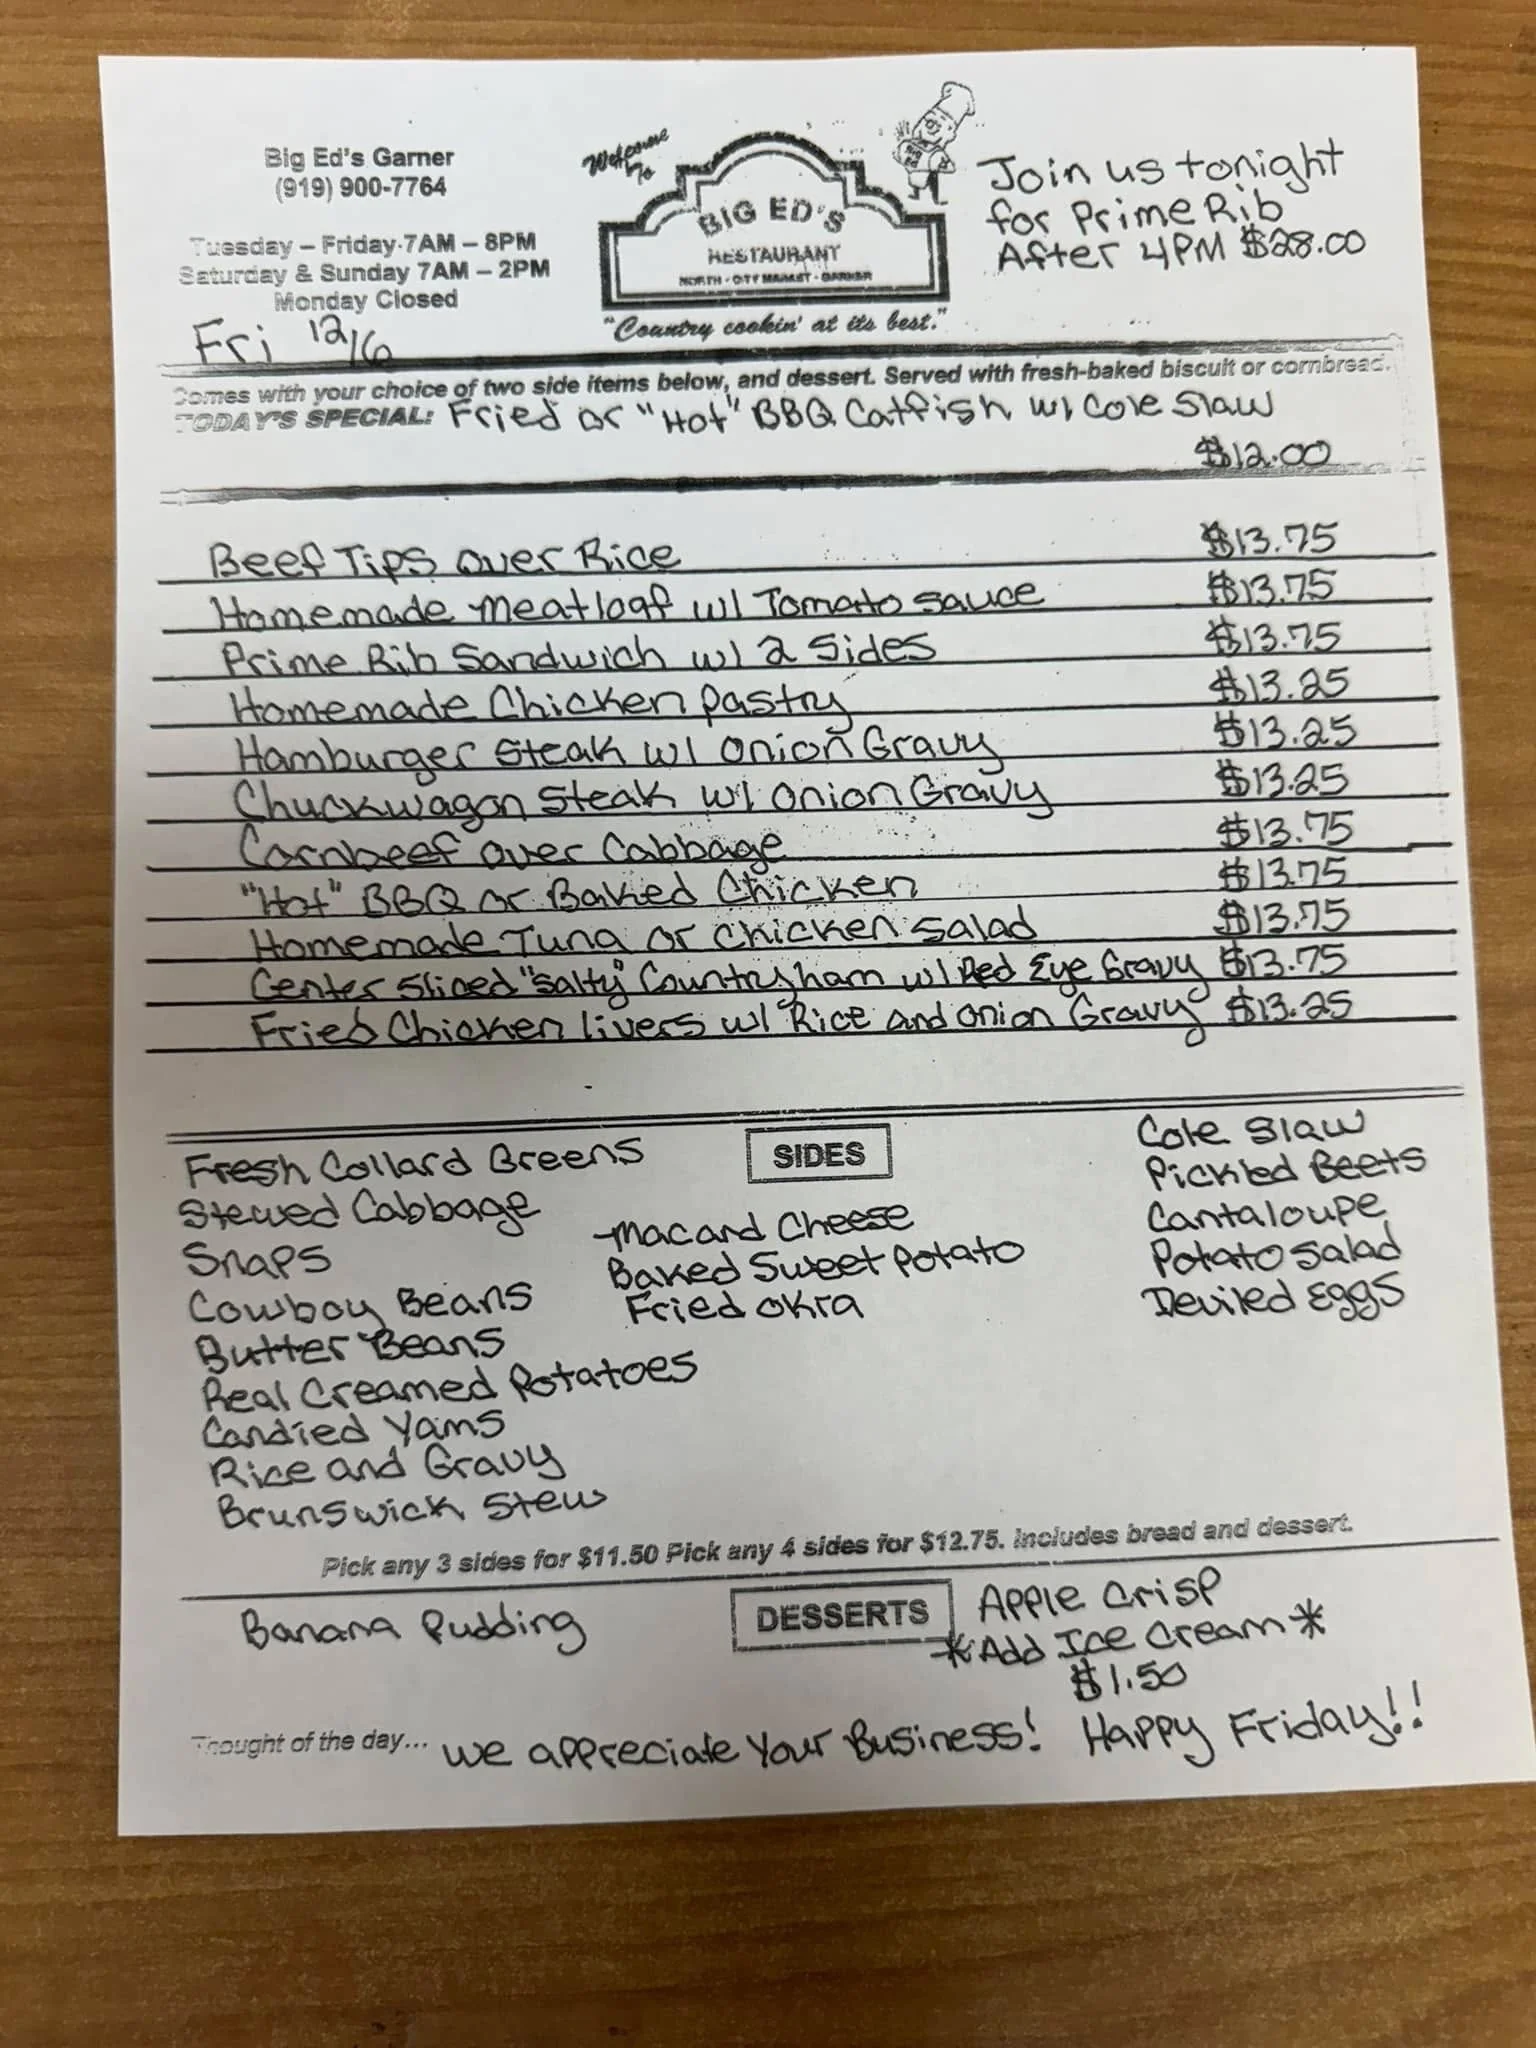 Big Ed's Garner
(919) 900-7764
Tuesday – Friday 7AM – 8PM
Saturday & Sunday 7AM – 2PM
Monday Closed
Fri 12/6
Welcome
To
BIG ED'S
RESTAURANT
NORTH - CITY MARKET - GARNER
"Country cookin' at its best."
BIG ED
Join us tonight
for Prime Rib
After 4PM $28.00
Comes with your choice of two side items below, and dessert. Served with fresh-baked biscuit or cornbread.
TODAY'S SPECIAL: Fried or "Hot" BBQ Catfish w/ Cole Slaw
$12.00
Beef Tips over Rice $13.75
Homemade Meatloaf w/ Tomato sauce $13.75
Prime Rib Sandwich w/ 2 Sides $13.75
Homemade Chicken Pastry $13.25
Hamburger Steak w/ Onion Gravy $13.25
Chuckwagon Steak w/ Onion Gravy $13.25
Cornbeef over Cabbage $13.75
"Hot" BBQ or Baked Chicken $13.75
Homemade Tuna or Chicken Salad $13.75
Center Sliced "Salty" Country ham w/ Red Eye Gravy $13.75
Fried Chicken livers w/ Rice and Onion Gravy $13.25
SIDES
Fresh Collard Greens
Stewed Cabbage
Snaps
Cowboy Beans
Butter Beans
Real Creamed Potatoes
Candied Yams
Rice and Gravy
Brunswick Stew
Mac and Cheese
Baked Sweet Potato
Fried Okra
Cole Slaw
Pickled Beets
Cantaloupe
Potato Salad
Deviled Eggs
Pick any 3 sides for $11.50 Pick any 4 sides for $12.75. Includes bread and dessert.
DESSERTS
Banana Pudding
Apple Crisp
*Add Ice Cream*
$1.50
Thought of the day... we appreciate Your Business! Happy Friday!!